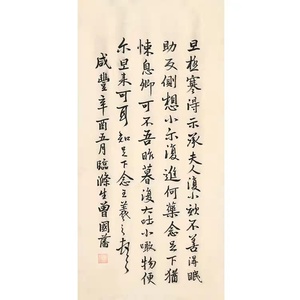 旦極寒得示承夫人復小欬不善得眠
助反側想小尔復進何藥念足下猶
悚息卿可不吾昨暮復大吐小噉物便
尔旦来可耳知足下念王羲之頓首
咸豐辛酉五月臨滌生曾國藩